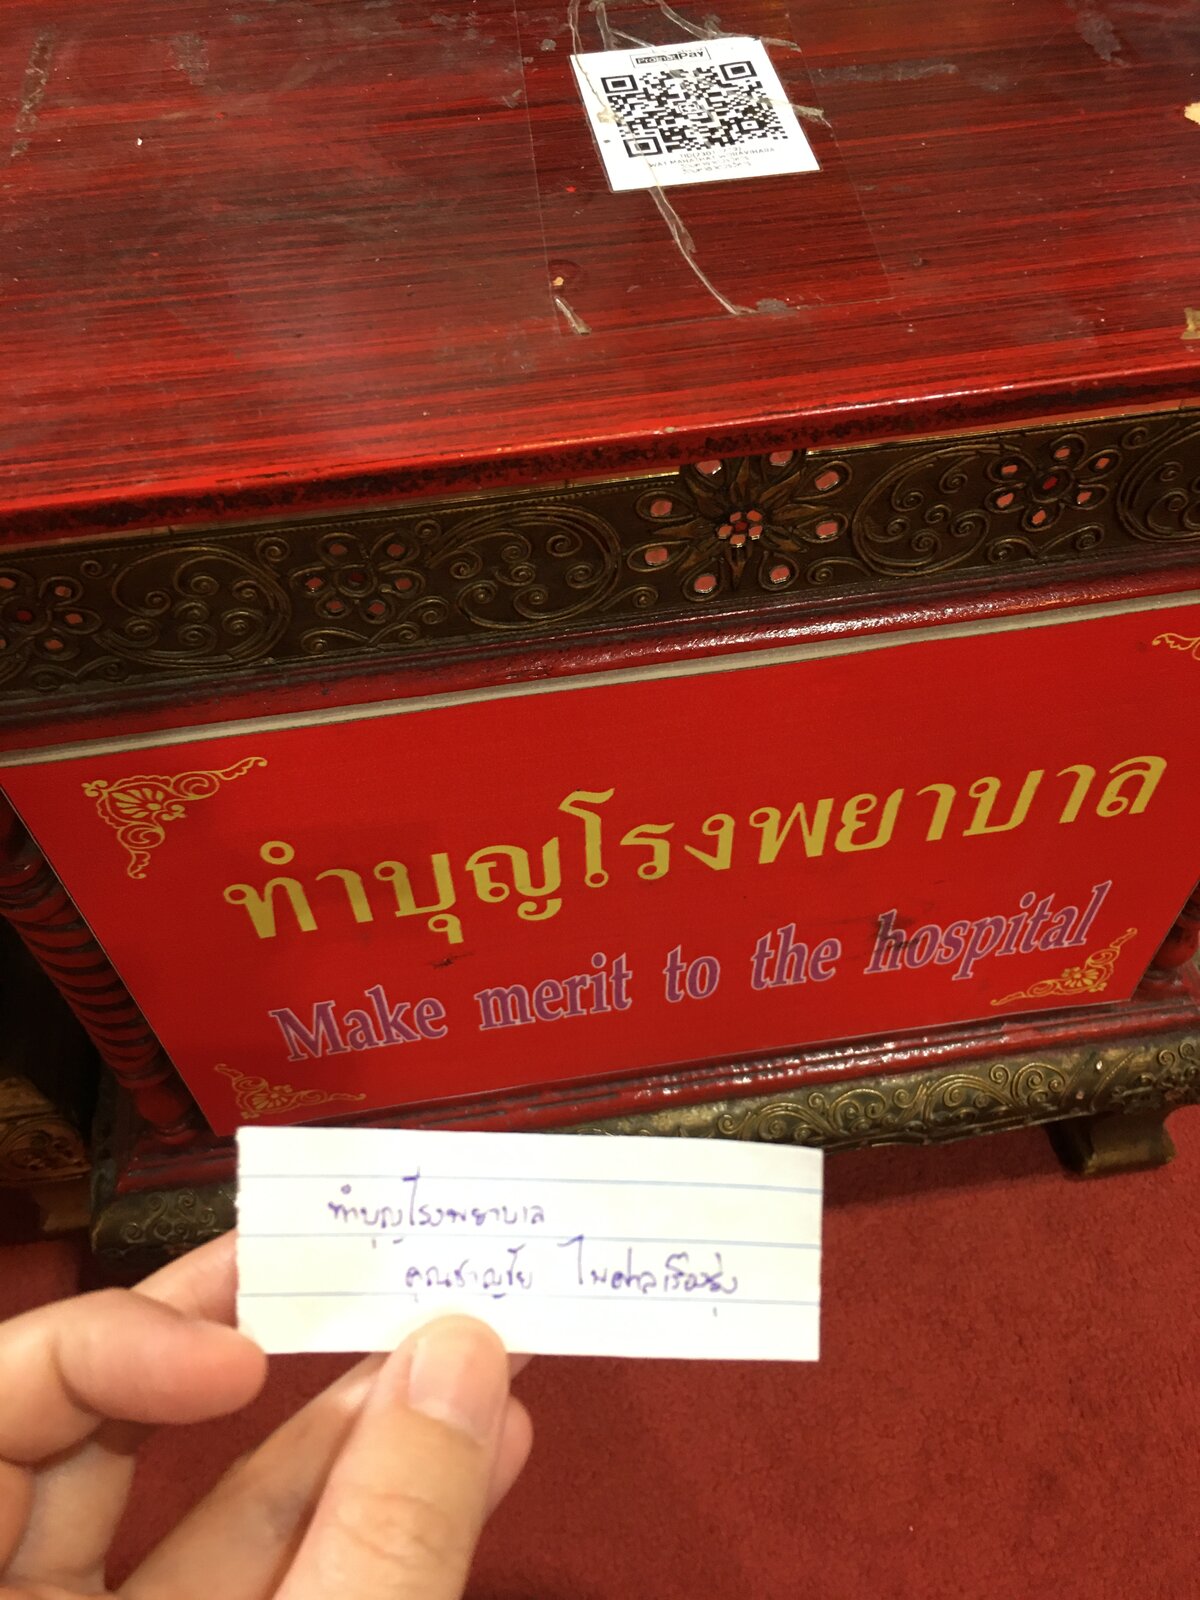 PromptPay
ทำบุญโรงพยาบาล
Make merit to the hospital
ทำบุญโรงพยาบาล
คุณชาญชัย ไพศาลเรืองรุ่ง